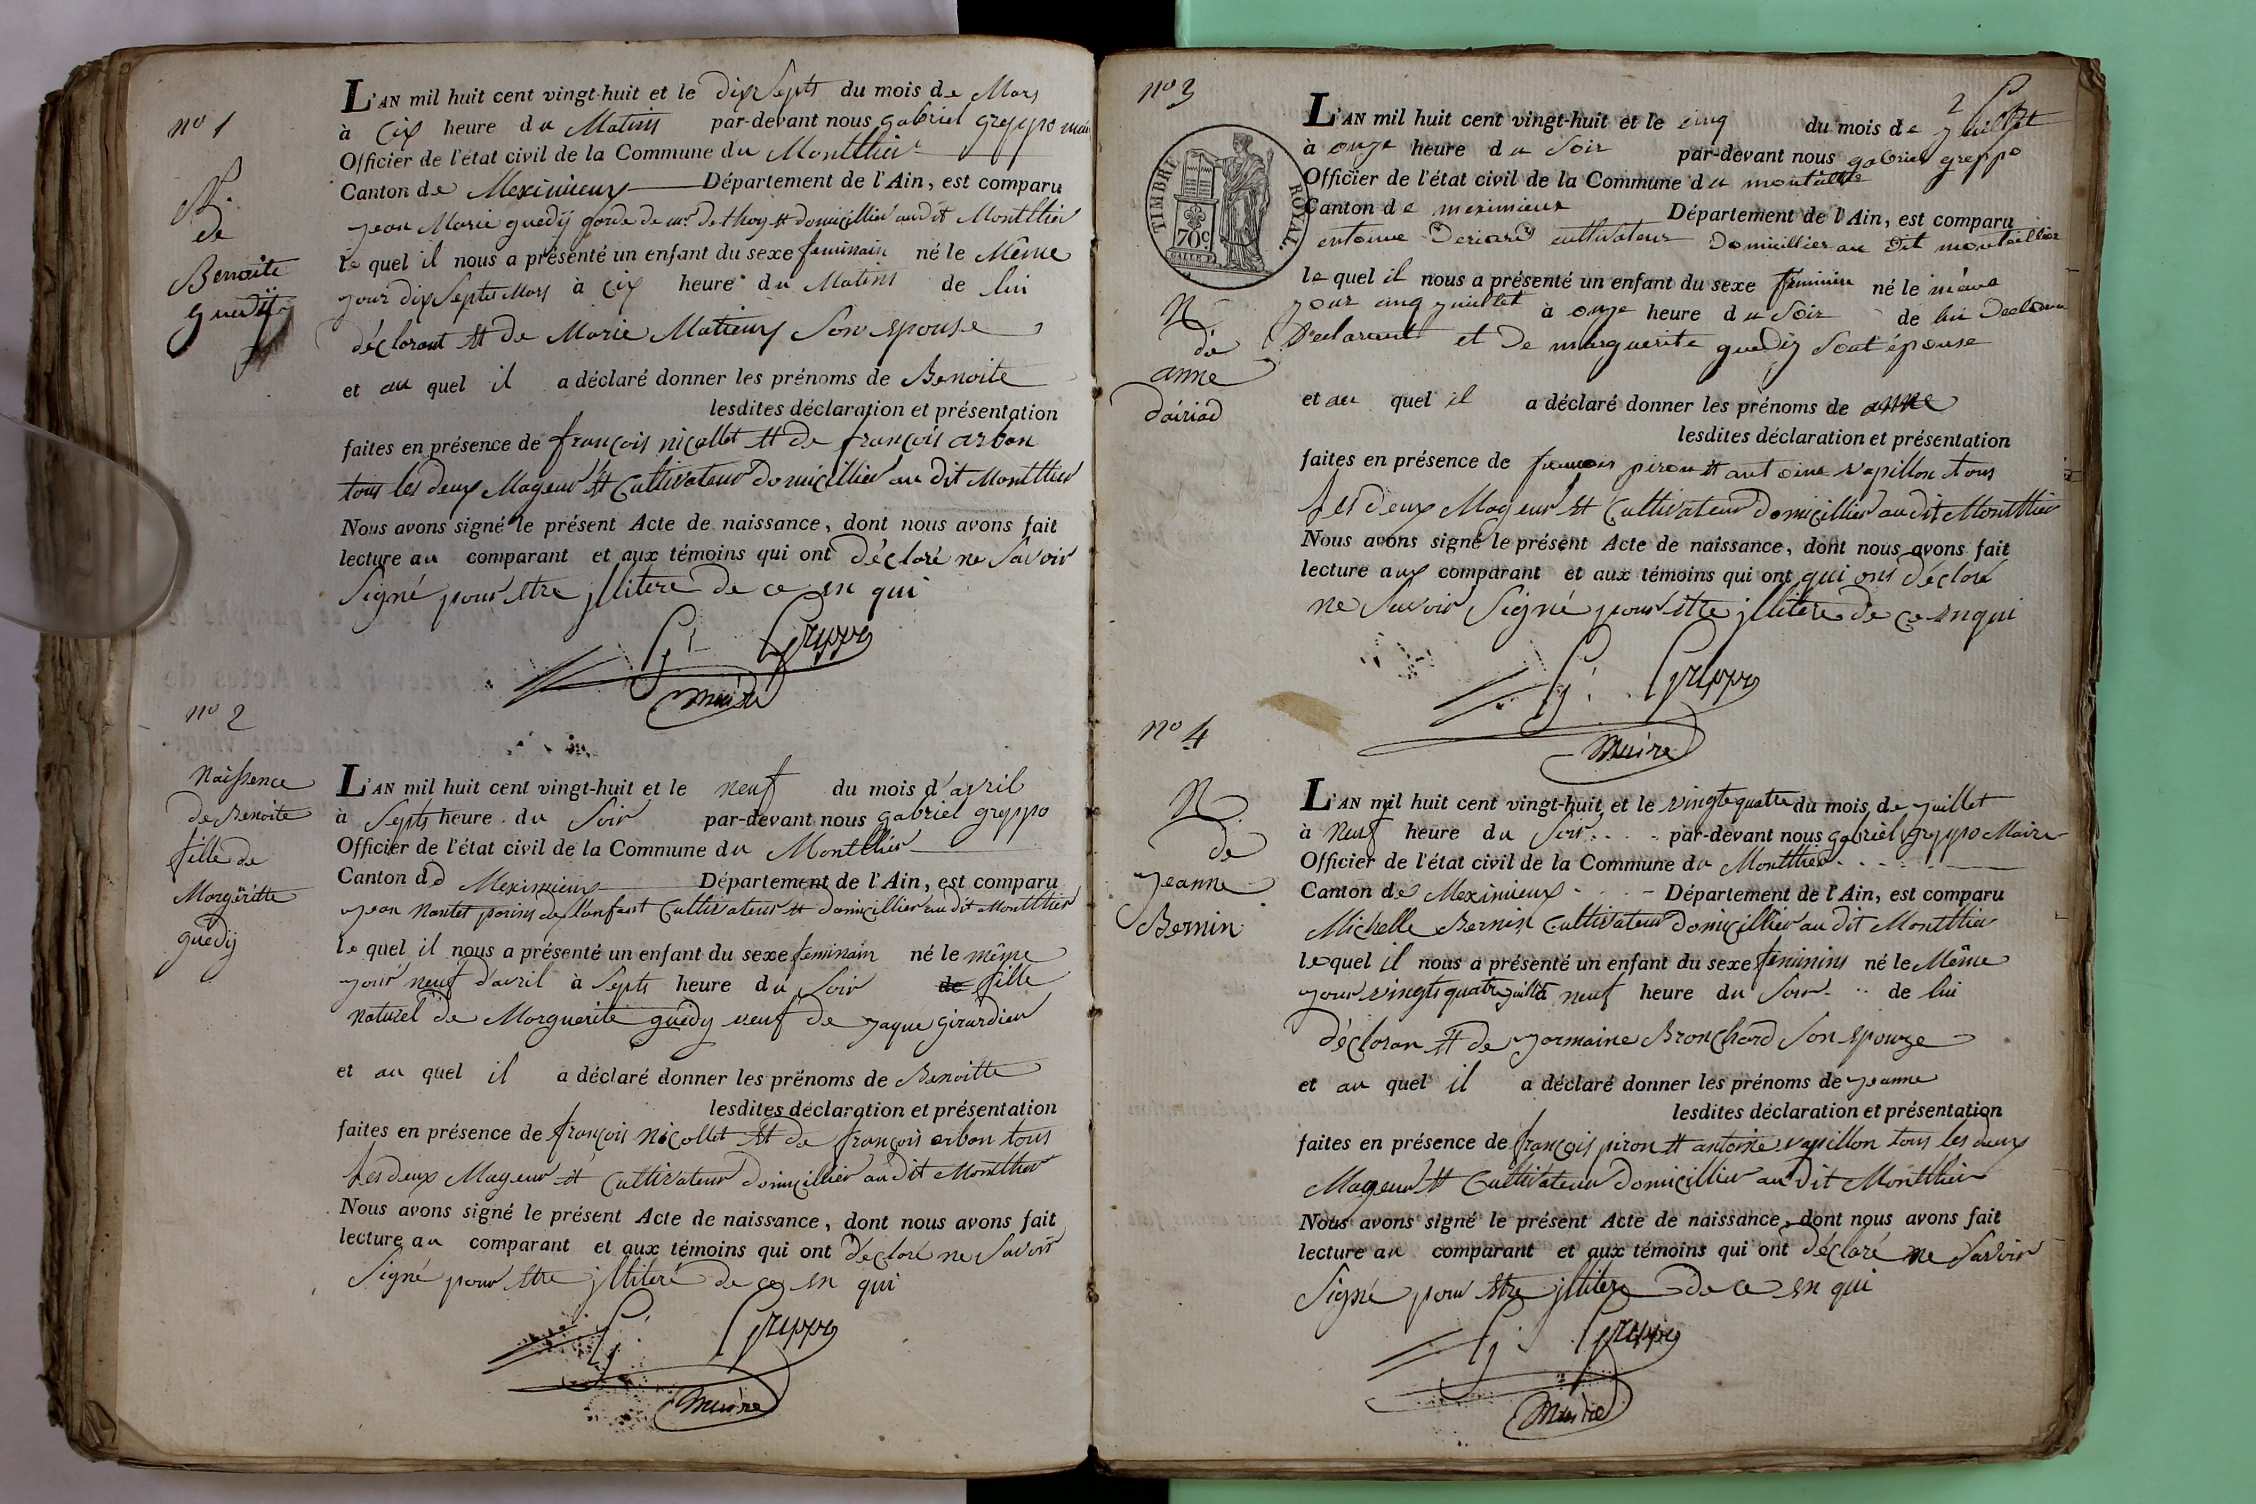 nº 1
N.
de
Benoite
guedij
L'AN mil huit cent vingt-huit et le dix Septs du mois de Mars
à Cix heure du Matins par-devant nous gabriel greppo
Officier de l'état civil de la Commune du Montthier
Canton de Meximieux Département de l'Ain, est comparu
jean Marie guedij garde de mr de thoy et domicillier audit Montthier
le quel il nous a présenté un enfant du sexe feminain né le Même
jour dix Septs Mars à Cix heure du Matins de lui
déclarant et de Marie Matieux Son epouse
et au quel il a déclaré donner les prénoms de Benoite
lesdites déclaration et présentation
faites en présence de françois nicollet et de françois arban
tous les deux Mageur et Cultivateur domicillier au dit Montthier
Nous avons signé le présent Acte de naissance, dont nous avons fait
lecture au comparant et aux témoins qui ont déclaré ne Savoir
Signé pour etre jllitere de ce en qui
G. Greppo
maire
nº 2
Naissence
de Benoite
fille de
Margueritte
guedij
L'AN mil huit cent vingt-huit et le neuf du mois d'avril
à Septs heure du Soir par-devant nous gabriel greppo
Officier de l'état civil de la Commune du Montthier
Canton de Meximieux Département de l'Ain, est comparu
jean Nantet parins de l'anfant Cultivateur et domicillier au dit Montthier
le quel il nous a présenté un enfant du sexe feminain né le même
jour neuf d'avril à Septs heure du Soir de fille
naturel de Marguerite guedij veuf de jaque girardier
et au quel il a déclaré donner les prénoms de Benoitte
lesdites déclaration et présentation
faites en présence de françois Nicollet et de françois arban tous
les deux Mageur et Cultivateur domicillier au dit Montthier
Nous avons signé le présent Acte de naissance, dont nous avons fait
lecture au comparant et aux témoins qui ont déclaré ne Savoir
Signé pour etre jllitere de ce en qui
G. Greppo
maire
nº 3
2
TIMBRE ROYAL
70c
N
de
anne
dairiad
L'AN mil huit cent vingt-huit et le cinq du mois de juillet
à onze heure du Soir par-devant nous gabriel greppo
Officier de l'état civil de la Commune du
Canton de meximieux Département de l'Ain, est comparu
cultivateur Domicillier au Dit
le quel il nous a présenté un enfant du sexe feminin né le même
jour cinq juillet à onze heure du Soir de lui
Declarant et de marguerite guedij Sont épouse
et au quel il a déclaré donner les prénoms de anne
lesdites déclaration et présentation
faites en présence de françois piron et antoine vapillon tous
les deux Mageur et Cultivateur domicillier au dit Montthier
Nous avons signé le présent Acte de naissance, dont nous avons fait
lecture aux comparant et aux témoins qui ont qui ons déclaré
ne Savoir Signé pour etre jllitere de ce en qui
G. Greppo
maire
nº 4
N
de
jeanne
Bernin
L'AN mil huit cent vingt-huit et le vingt quatre du mois de juillet
à neuf heure du Soir par-devant nous gabriel greppo Maire
Officier de l'état civil de la Commune du Montthier
Canton de Meximieux Département de l'Ain, est comparu
Michelle Bernin Cultivateur domicillier au dit Montthier
le quel il nous a présenté un enfant du sexe feminins né le Même
jour vingts quatre juillet à neuf heure du Soir de lui
déclaran et de jermaine Bronchard Son epouze
et au quel il a déclaré donner les prénoms de jeanne
lesdites déclaration et présentation
faites en présence de françois piron et antoine vapillon tous les deux
Mageur et Cultivateur domicillier au dit Montthier
Nous avons signé le présent Acte de naissance, dont nous avons fait
lecture au comparant et aux témoins qui ont déclaré ne Savoir
Signé pour etre jllitere de ce en qui
G. Greppo
maire